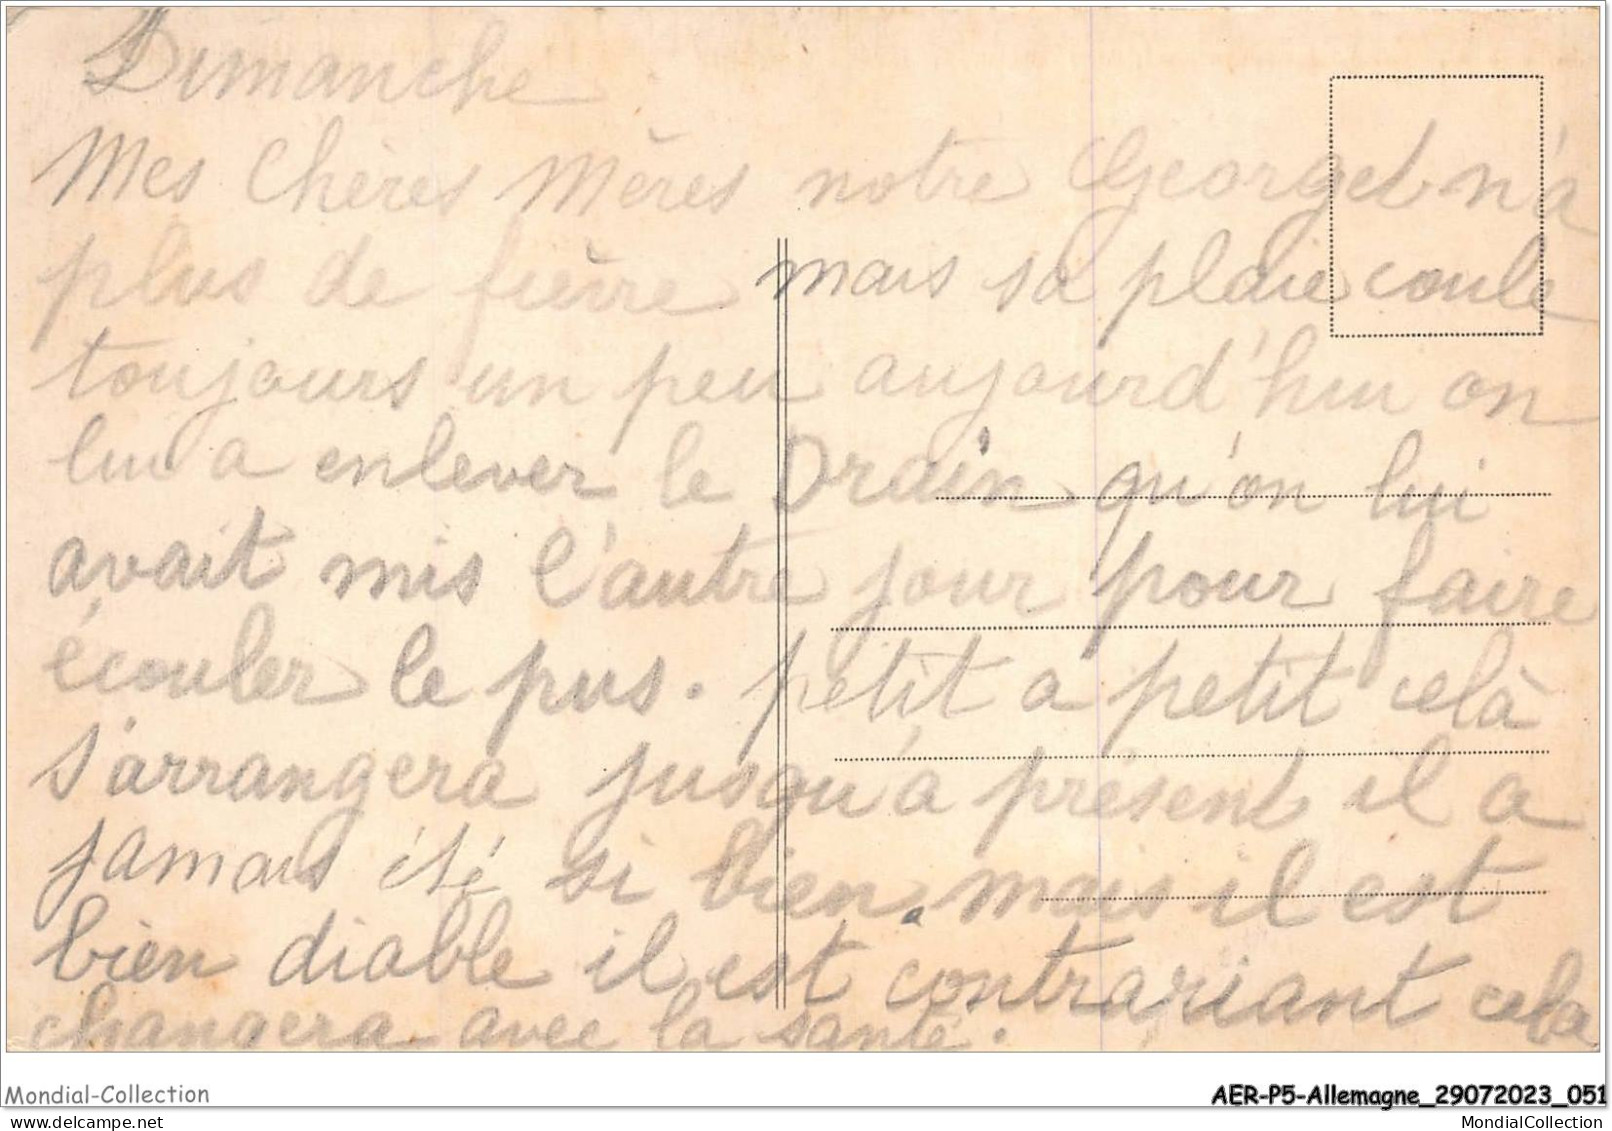 Dimanche
Mes Chères Mères notre Georget n'a
plus de fièvre mais sa plaie coule
toujours un peu aujourd'hui on
lui a enlever le Drain qu'on lui
avait mis l'autre jour pour faire
écouler le pus. petit a petit celà
s'arrangera jusqu'à présent il a
jamais été si bien. mais il est
bien diable il est contrariant cela
changera avec la santé.
Mondial-Collection
AER-P5-Allemagne_29072023_051
www.delcampe.net
MondialCollection